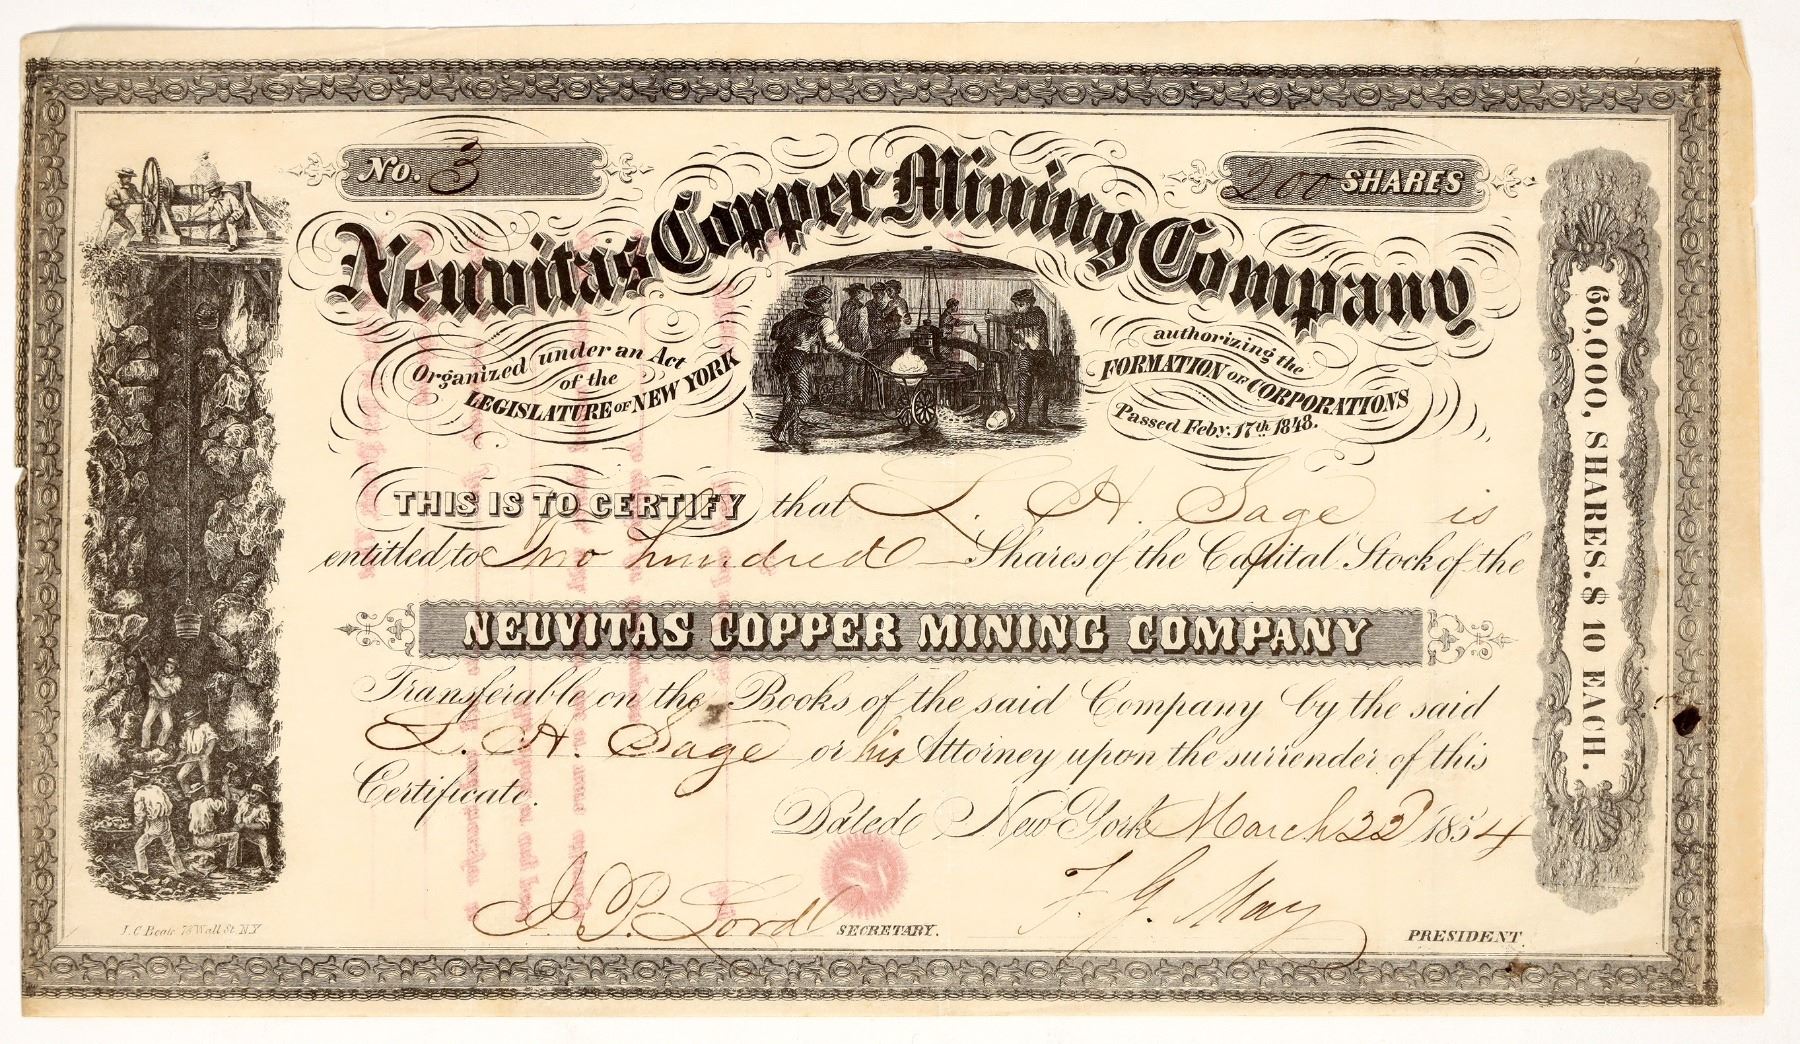 No. 3
200 SHARES
Neuvitas Copper Mining Company
Organized under an Act
of the
LEGISLATURE OF NEW YORK
authorizing the
FORMATION OF CORPORATIONS
Passed Feby. 17th 1848.
THIS IS TO CERTIFY that L. H. Sage is
entitled to Two hundred Shares of the Capital Stock of the
NEUVITAS COPPER MINING COMPANY
Transferable on the Books of the said Company by the said
L. H. Sage or his Attorney upon the surrender of this
Certificate.
Dated New York March 22d 1854
J. P. Lord SECRETARY.
F. G. May PRESIDENT.
60,000, SHARES. $ 10 EACH.
Wall St. N.Y